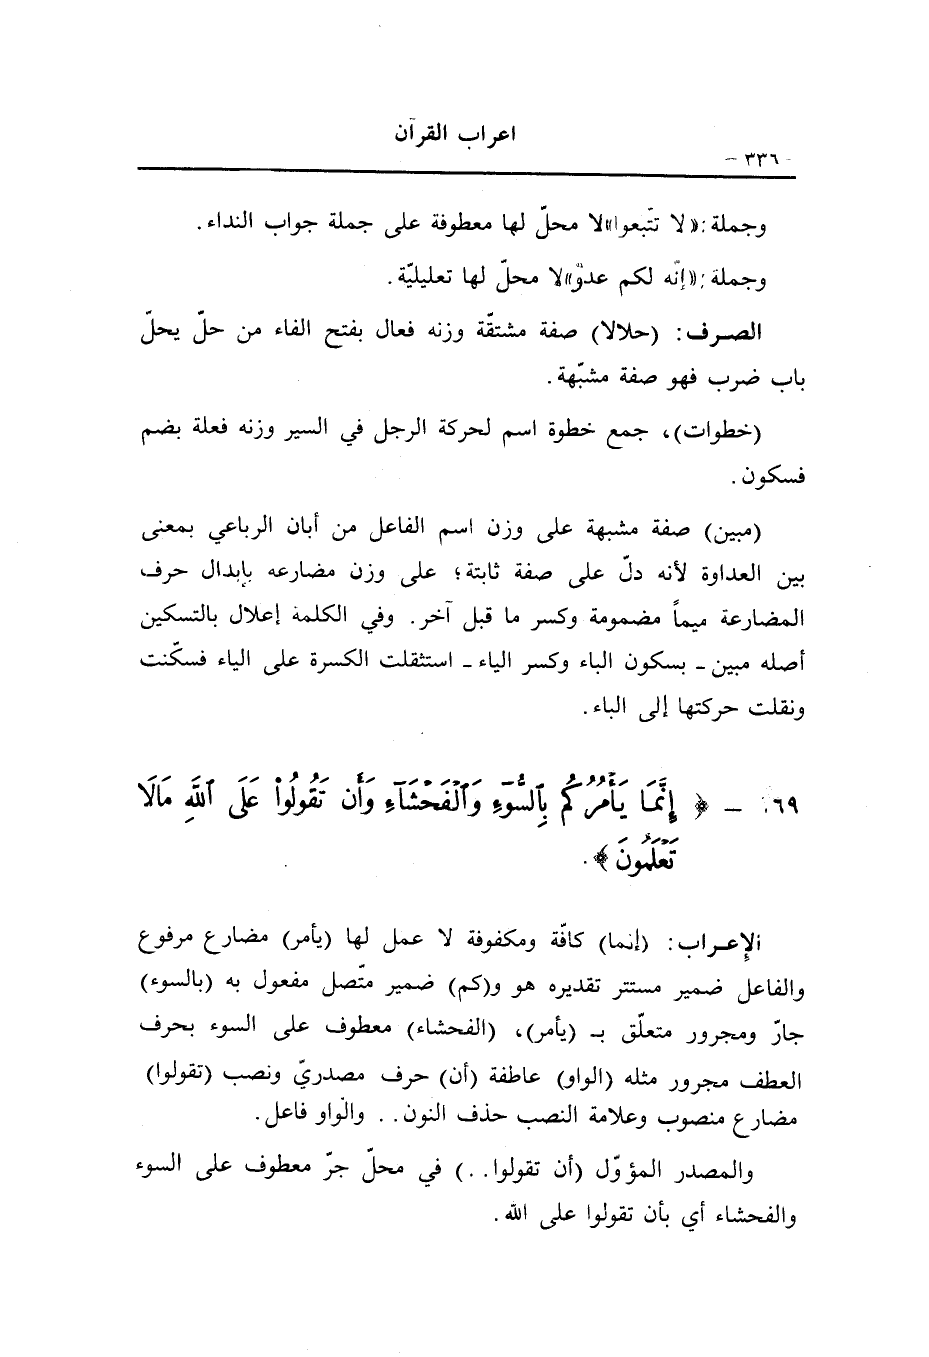 اعراب القرآن
- ٣٣٦ -
وجملة: «لا تتّبعوا» لا محلّ لها معطوفة على جملة جواب النداء.
وجملة: «إنّه لكم عدوّ» لا محلّ لها تعليليّة.
الصرف: (حلالا) صفة مشتقّة وزنه فعال بفتح الفاء من حلّ يحلّ
باب ضرب فهو صفة مشبّهة.
(خطوات)، جمع خطوة اسم لحركة الرجل في السير وزنه فعلة بضم
فسكون.
(مبين) صفة مشبهة على وزن اسم الفاعل من أبان الرباعي بمعنى
بين العداوة لأنه دلّ على صفة ثابتة؛ على وزن مضارعه بإبدال حرف
المضارعة ميماً مضمومة وكسر ما قبل آخر. وفي الكلمة إعلال بالتسكين
أصله مبين ـ بسكون الباء وكسر الياء ـ استثقلت الكسرة على الياء فسكّنت
ونقلت حركتها إلى الباء.
٦٩. ـ ﴿ إِنَّمَا يَأْمُرُكُم بِٱلسُّوٓءِ وَٱلْفَحْشَآءِ وَأَن تَقُولُوا۟ عَلَى ٱللَّهِ مَالَا
تَعْلَمُونَ ﴾.
الإعراب: (إنما) كافّة ومكفوفة لا عمل لها (يأمر) مضارع مرفوع
والفاعل ضمير مستتر تقديره هو و(كم) ضمير متّصل مفعول به (بالسوء)
جارّ ومجرور متعلّق بـ (يأمر)، (الفحشاء) معطوف على السوء بحرف
العطف مجرور مثله (الواو) عاطفة (أن) حرف مصدريّ ونصب (تقولوا)
مضارع منصوب وعلامة النصب حذف النون.. والواو فاعل.
والمصدر المؤوّل (أن تقولوا..) في محلّ جرّ معطوف على السوء
والفحشاء أي بأن تقولوا على الله.